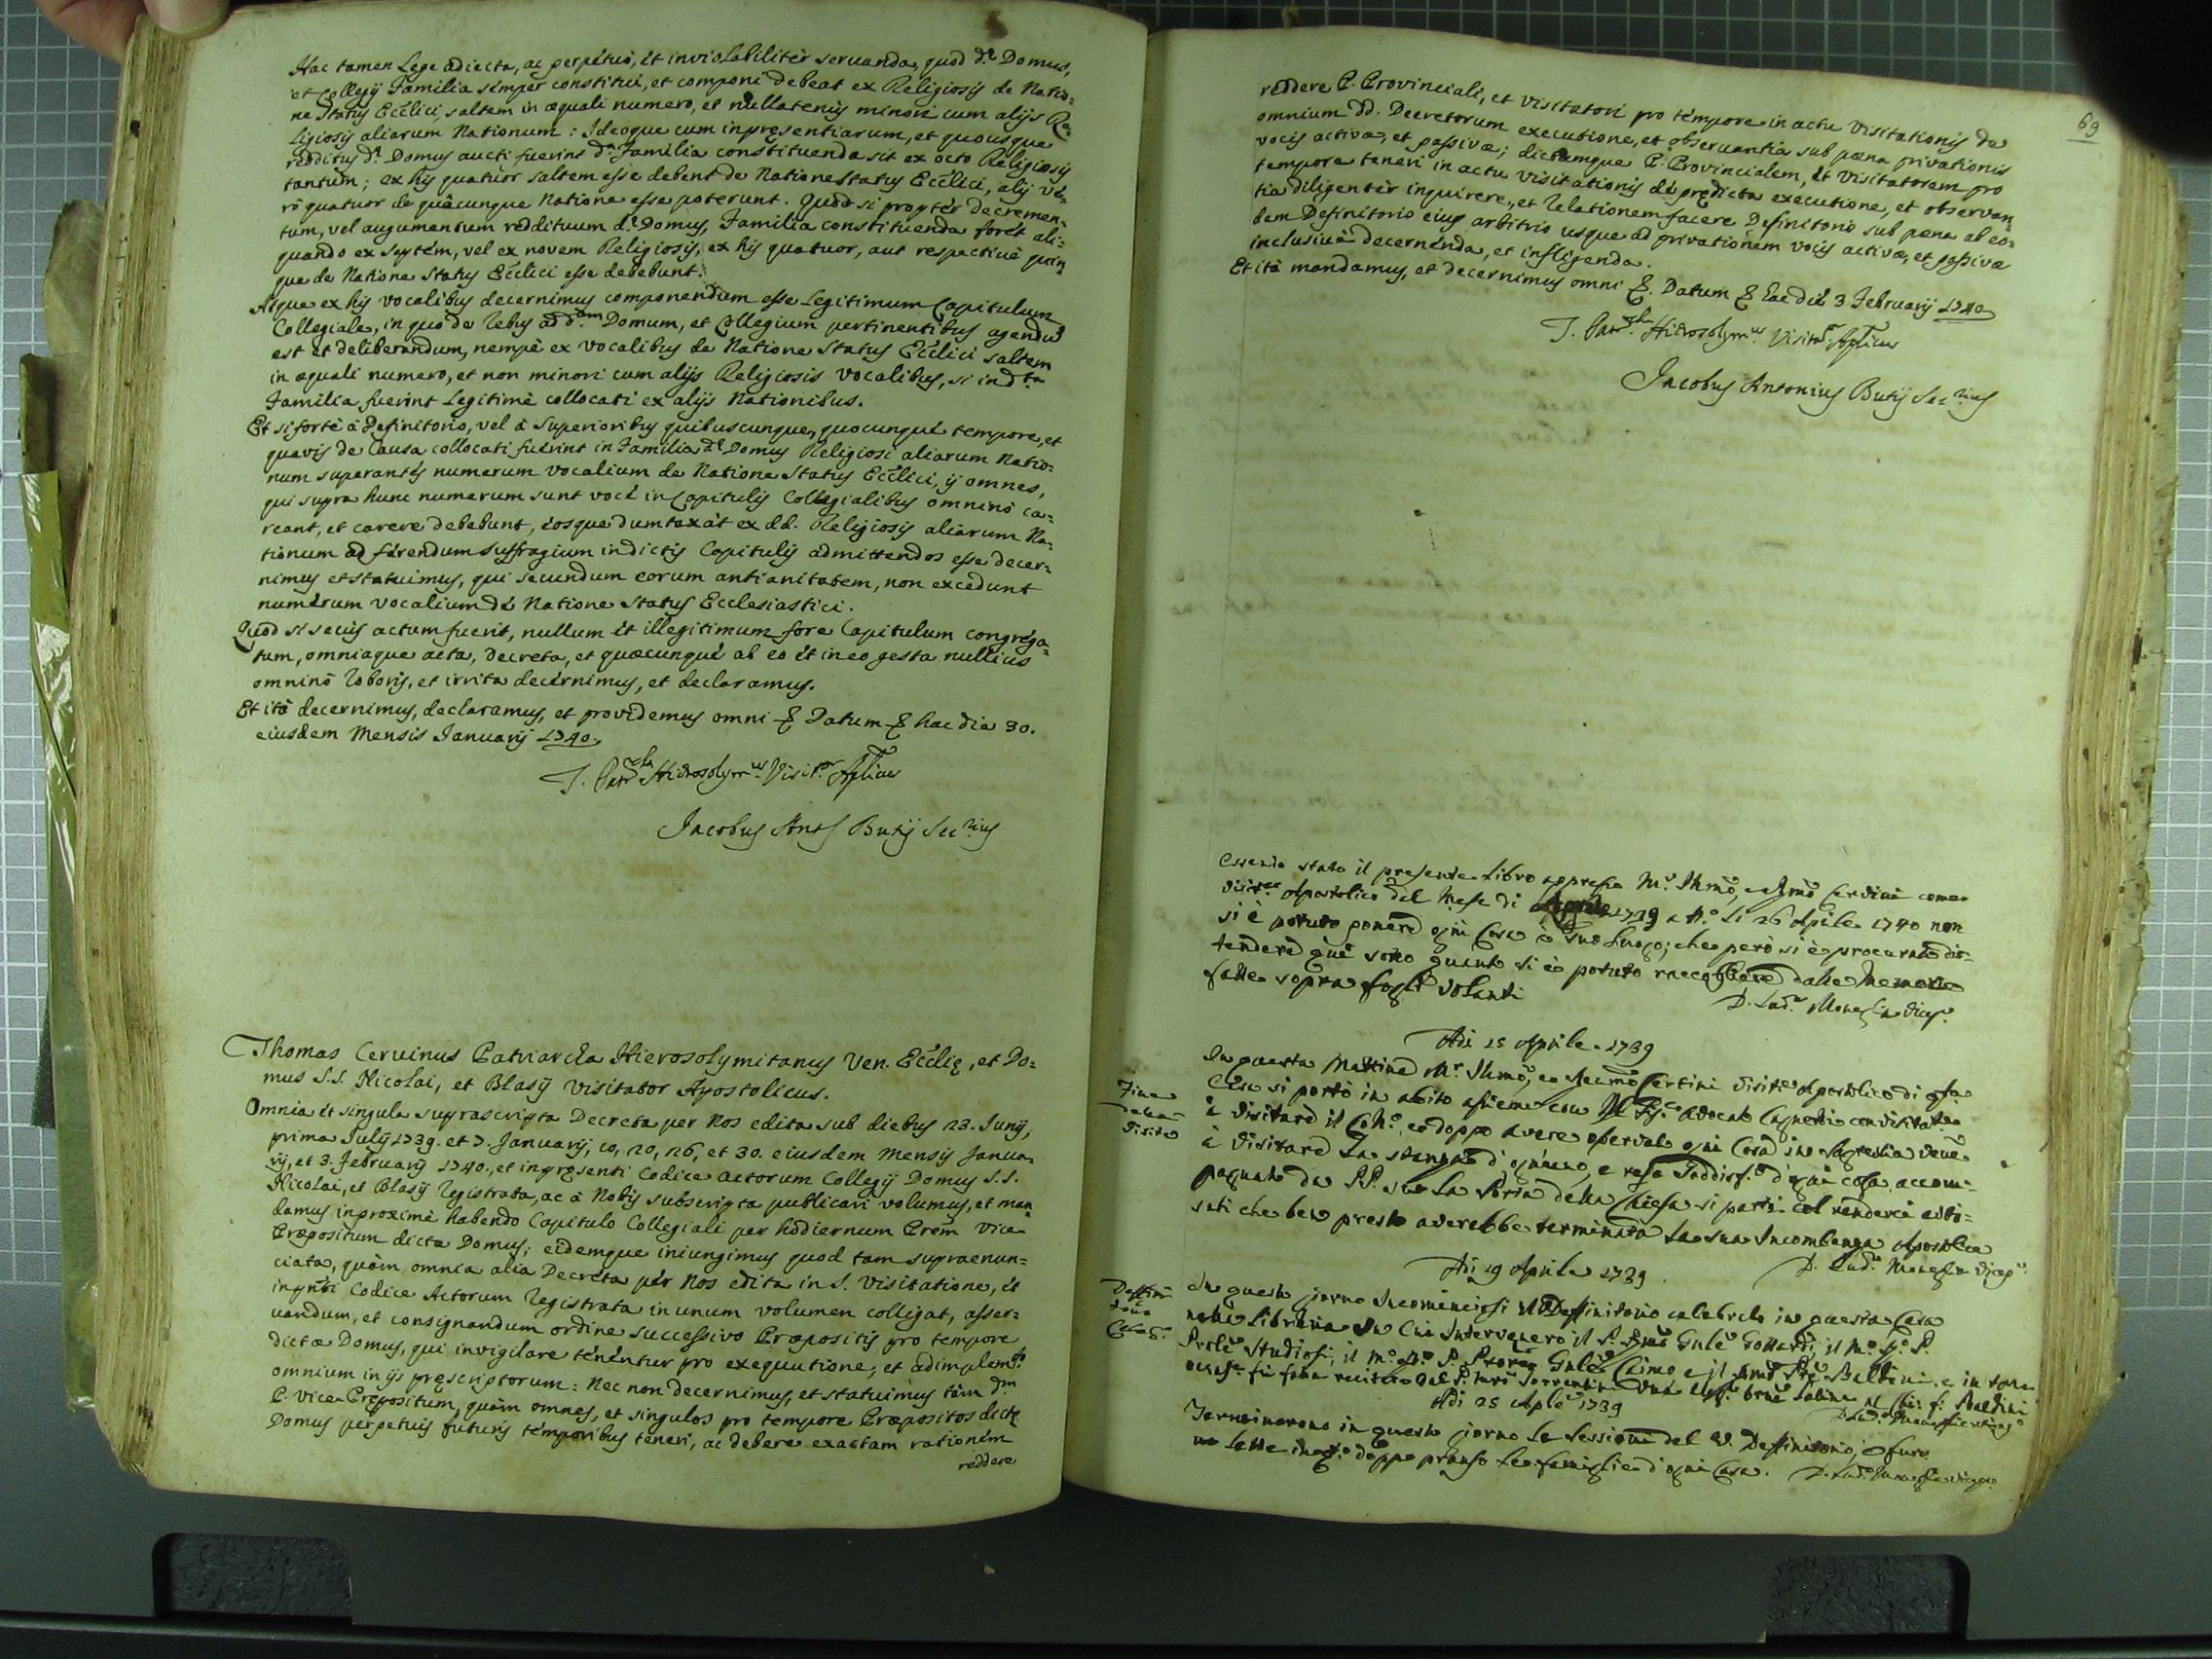 Hac tamen Lege adiecta, ac perpetuò, et inviolabilitèr servanda, quod d.ę Domus,
et Collegij Familia sempèr constitui, et componi debeat ex Religiosis de Natio=
ne Status Ecclici, saltem in æquali numero, et nullatenùs minori cum alijs Re=
ligiosis aliarum Nationum: Ideoque cum inpręsentiarum, et quousque
redditus d.ę Domus aucti fuerint d.a Familia constituenda sit ex octo Religiosis
tantum; ex his quatuor saltem esse debent de Natione Status Ecclici, alij ve=
rò quatuor de quâcunque Natione esse poterunt. Quòd si proptèr decremen=
tum, vel augumentum reddituum d.ę Domus, Familia constituenda foret ali=
quando ex septèm, vel ex novem Religiosis, ex his quatuor, aut respectivè quin=
que de Natione Status Ecclici esse debebunt.
Atque ex his vocalibus decernimus componendum esse Legitimum Capitulum
Collegiale, in quo de rebus ad d.am Domum, et Collegium pertinentibus agendū
est et deliberandum, nempè ex vocalibus de Natione Status Ecclici saltem
in æquali numero, et non minori cum alijs Religiosis vocalibus, si in d.ta
Familia fuerint Legitimè collocati ex alijs Nationibus.
Et si fortè à Definitorio, vel à Superioribus quibuscunque, quocunque tempore, et
quavis de Causa collocati fuerint in Familia d.ę Domus Religiosi aliarum Natio=
num superantes numerum vocalium de Natione Status Ecclici, ij omnes,
qui supra hunc numerum sunt voce in Capitulis Collegialibus omninò ca=
reant, et carere debebunt, eosque dumtaxàt ex dd. Religiosis aliarum Na=
tionum ad ferendum suffragium in dictis Capitulis admittendos esse decer=
nimus et statuimus, qui secundum eorum antianitatem, non excedunt
numerum vocalium de Natione Status Ecclesiastici.
Quod si secùs actum fuerit, nullum et illegitimum fore Capitulum congrega=
tum, omniaque acta, decreta, et quæcunque ab eo et in eo gesta nullius
omninò roboris, et irrita decernimus, et declaramus.
Et ità decernimus, declaramus, et providemus omni &. Datum & hac die 30.
eiusdem Mensis Januarij 1740.
T. Patr.cha Hierosolym.us Visit.or Aplicus
Jacobus Ant.s Butij Sec.rius
Thomas Cervinus Patriarcha Hierosolymitanus Ven. Ecclię, et Do=
mus S.S. Nicolai, et Blasij Visitator Apostolicus.
Omnia et singula suprascripta Decreta per Nos edita sub diebus 23. Junij,
prima Julij 1739. et 7. Januarij, 10, 20, 26, et 30. eiusdem Mensis Janua=
rij, et 3. Februarij 1740., et in pręsenti Codice actorum Collegij Domus S.S.
Nicolai, et Blasij registrata, ac à Nobis subscripta publicari volumus, et man=
damus in proximè habendo Capitulo Collegiali per hodiernum Prem Vice
Præpositum dictæ Domus; eidemque iniungimus quod tam supraenun=
ciata, quàm omnia alia Decreta per Nos edita in S. Visitatione, et
in pnti Codice Actorum registrata in unum volumen colligat, asser=
vandum, et consignandum ordine successivo Præpositis pro tempore
dictæ Domus, qui invigilare tenentur pro exequutione, et adimplem.to
omnium in ijs pręscriptorum: Nec non decernimus, et statuimus tàm d.m
P. Vice Prępositum, quàm omnes, et singulos pro tempore Præpositos dictę
Domus perpetuis futuris temporibus teneri, ac debere exactam rationem
reddere
69
reddere P. Provinciali, et Visitatori pro tempore in actu Visitationis de
omnium dd. Decretorum executione, et observantia sub pœna privationis
vocis activæ, et passivæ; dictumque P. Provincialem, et Visitatorem pro
tempore teneri in actu Visitationis de prędicta executione, et observan=
tia diligentèr inquirere, et relationem facere Definitorio sub pœna ab eo=
dem Definitorio eius arbitrio usque ad privationem vocis activæ, et passivæ
inclusivè decernenda, et infligenda.
Et ità mandamus, et decernimus omni &. Datum & hac die 3. Februarij 1740.
T. Patr.cha Hierosolym.us Visit.r Aplicus
Jacobus Antonius Butij Sec.rius
Essendo stato il presente Libro appresso M.r Illmo, e Rmo Cervini come
Visit.re Apostolico dal Mese di Aprile 1739 a t.o li 26 Aprile 1740 non
si è potuto ponere ogni Cosa à suo Luogo; che però si è procurato dis=
tendere quì sotto quanto si è potuto raccogliere dalle Memorie
fatte sopra fogli volanti
Adi 15 Aprile 1739
Fine
della
Visita
In questa Mattina M.r Illmo, e Rmo Cervini Visit.re Apostolico di qta
Casa si portò in abito assieme con
à visitare il e doppo avere osservato ogni Cosa in Sagrestia venne
à visitare le stanze d'ogn'uno, e resa Soddisf.e d'ogni cosa accom=
pagnato da PP. su la Porta della Chiesa si partì col rendersi avvi=
sati che ben presto averebbe terminata la sua Incombenza Apostolica
Adi 19 Aprile 1739
In questo giorno Incominciossi il Deffinitorio celebrato in questa Casa
nella Libraria In cui Intervenero il P.
Studiosi, il
Adi 25 Aple 1739
Terminorono in questo giorno le Sessioni del V. Deffinitorio, e furo
no lette doppo pranso le famiglie d'ogni Casa.